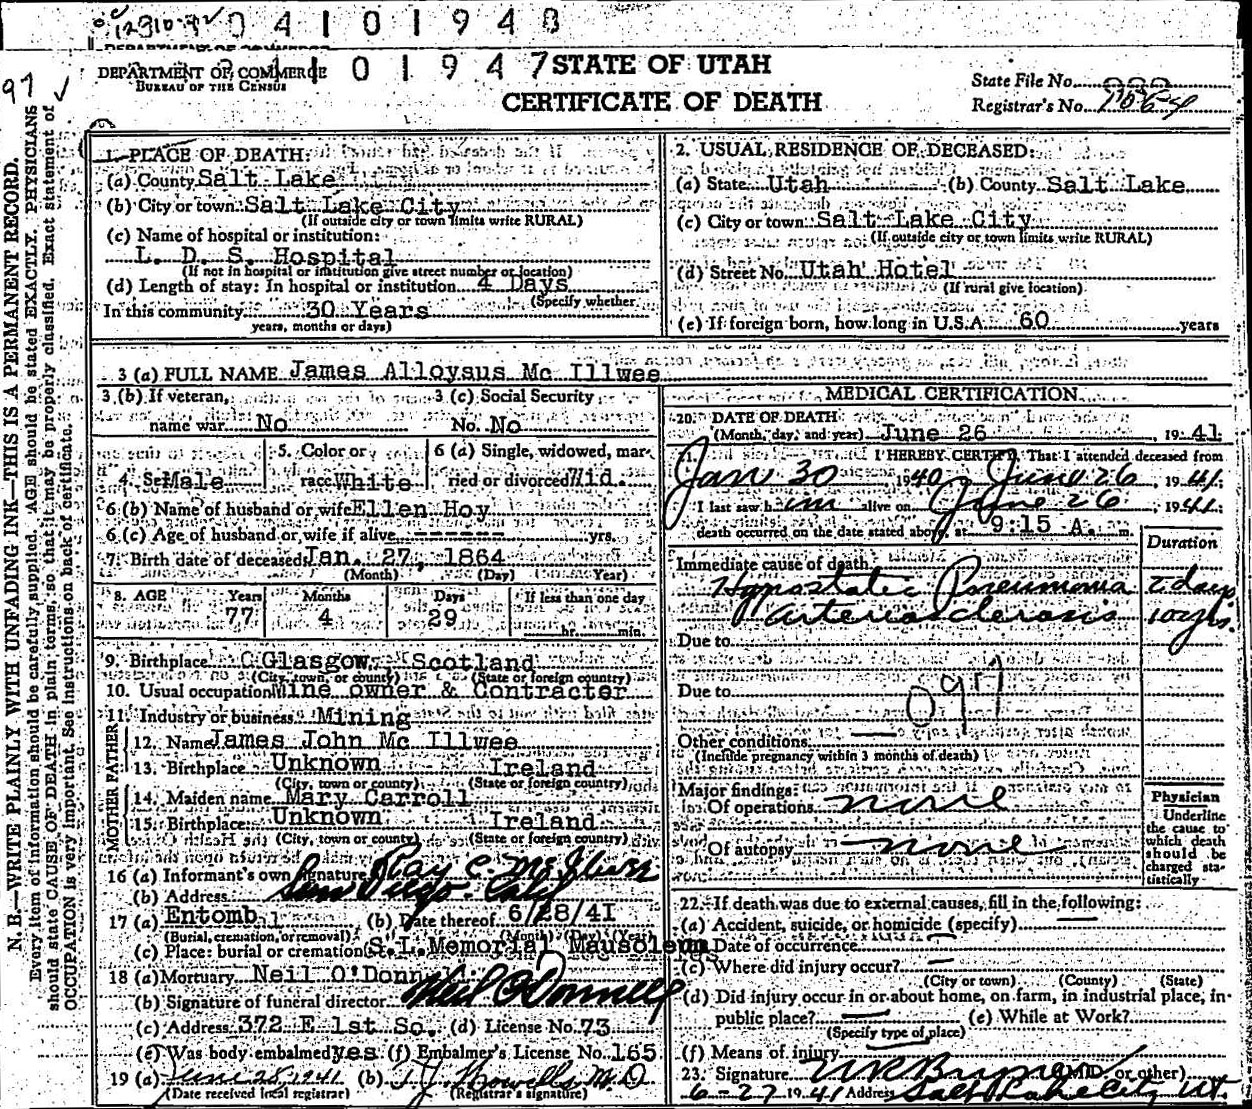 0 4 1 0 1 9 4 8
DEPARTMENT OF COMMERCE
0 4 1 0 1 9 4 7
DEPARTMENT OF COMMERCE
BUREAU OF THE CENSUS
STATE OF UTAH
CERTIFICATE OF DEATH
State File No.
Registrar's No.
97 ✓
N. B.—WRITE PLAINLY WITH UNFADING INK—THIS IS A PERMANENT RECORD.
Every item of information should be carefully supplied. AGE should be stated EXACTLY. PHYSICIANS
should state CAUSE OF DEATH in plain terms, so that it may be properly classified. Exact statement of
OCCUPATION is very important. See instructions on back of certificate.
1. PLACE OF DEATH:
(a) County Salt Lake
(b) City or town Salt Lake City
(If outside city or town limits write RURAL)
(c) Name of hospital or institution:
L. D. S. Hospital
(If not in hospital or institution give street number or location)
(d) Length of stay: In hospital or institution 4 Days
(Specify whether
In this community 30 Years
years, months or days)
2. USUAL RESIDENCE OF DECEASED:
(a) State Utah (b) County Salt Lake
(c) City or town Salt Lake City
(If outside city or town limits write RURAL)
(d) Street No. Utah Hotel
(If rural give location)
(e) If foreign born, how long in U.S.A. 60 years
3 (a) FULL NAME James Alloysus Mc Illwee
3 (b) If veteran,
name war No
3 (c) Social Security
No. No
4. Sex Male
5. Color or
race White
6 (a) Single, widowed, mar-
ried or divorced Wid.
6 (b) Name of husband or wife Ellen Hoy
6 (c) Age of husband or wife if alive ------- yrs.
7. Birth date of deceased Jan. 27, 1864
(Month) (Day) (Year)
8. AGE Years Months Days If less than one day
77 4 29 hr. min.
9. Birthplace Glasgow, Scotland
(City, town, or county) (State or foreign country)
10. Usual occupation Mine owner & Contracter
11. Industry or business Mining
FATHER
12. Name James John Mc Illwee
13. Birthplace Unknown Ireland
(City, town or county) (State or foreign country)
MOTHER
14. Maiden name Mary Carroll
15. Birthplace Unknown Ireland
(City, town or county) (State or foreign country)
16 (a) Informant's own signature Ray C. McIlwee
(b) Address San Diego. Calif
17 (a) Entomb (b) Date thereof 6/28/41
(Burial, cremation, or removal) (Month) (Day) (Year)
(c) Place: burial or cremation S.L. Memorial Mausoleum
18 (a) Mortuary Neil O'Donnell
(b) Signature of funeral director Neil O'Donnell
(c) Address 372 E 1st So. (d) License No. 73
(e) Was body embalmed yes (f) Embalmer's License No. 165
19 (a) June 28, 1941 (b) T J Howells M.D
(Date received local registrar) (Registrar's signature)
MEDICAL CERTIFICATION
20. DATE OF DEATH
(Month, day, and year) June 26, 1941
21. I HEREBY CERTIFY, That I attended deceased from
Jan 30, 1940, June 26, 1941;
I last saw him alive on June 26, 1941;
death occurred on the date stated above, at 9:15 A. m.
Duration
Immediate cause of death
Hypostatic Pneumonia 2 days
arteriosclerosis 10 yrs.
Due to
Due to
097
Other conditions
(Include pregnancy within 3 months of death)
Major findings:
Of operations none
Of autopsy none
Physician
Underline
the cause to
which death
should be
charged sta-
tistically
22. If death was due to external causes, fill in the following:
(a) Accident, suicide, or homicide (specify)
(b) Date of occurrence
(c) Where did injury occur?
(City or town) (County) (State)
(d) Did injury occur in or about home, on farm, in industrial place, in
public place? (e) While at Work?
(Specify type of place)
(f) Means of injury
23. Signature (M.D. or other)
6-27 1941 Address Salt Lake City Ut.